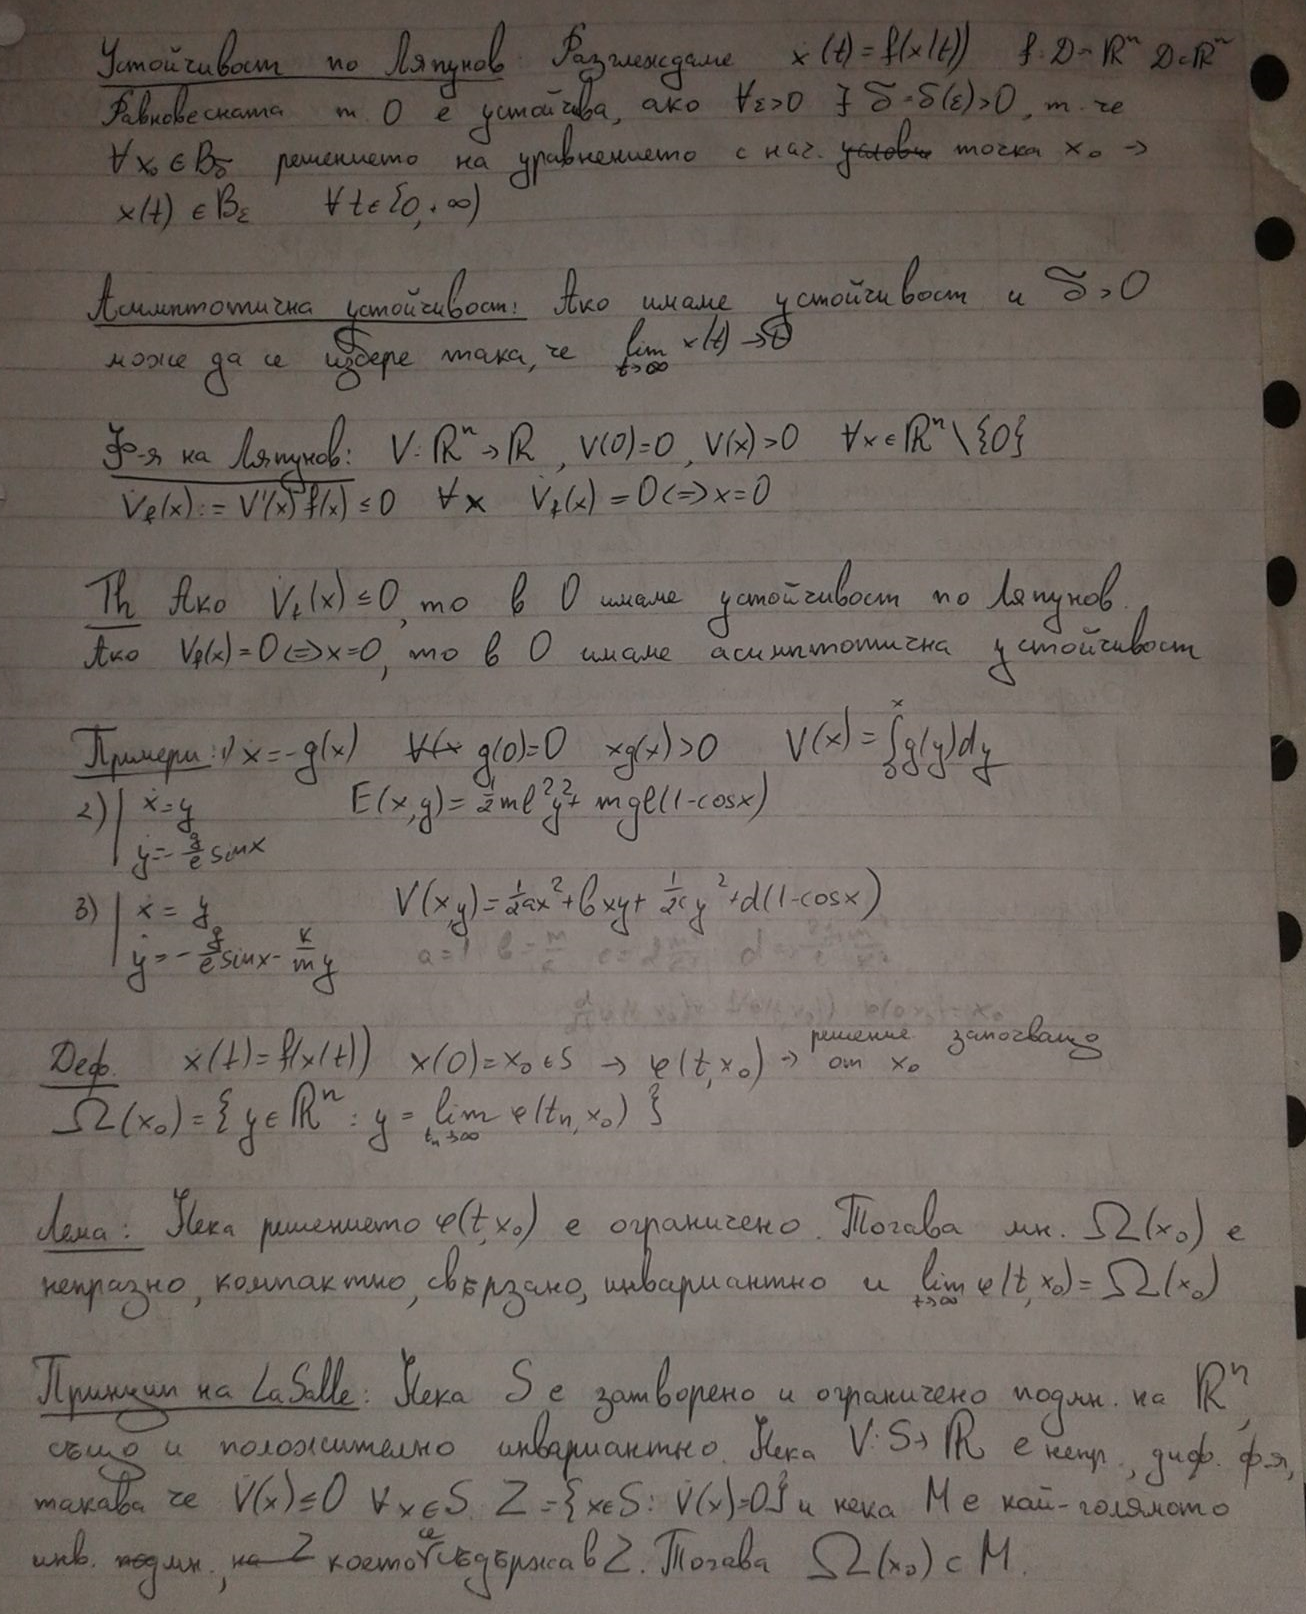 Устойчивост по Ляпунов: Разглеждаме ẋ(t) = f(x(t)) f: D→ℝⁿ D⊂ℝⁿ
Равновесната т. 0 е устойчива, ако ∀ε>0 ∃ δ=δ(ε)>0, т. че
∀x₀∈B_δ решението на уравнението с нач. точка x₀ →
x(t) ∈ B_ε ∀t∈[0,+∞)
Асимптотична устойчивост: Ако имаме устойчивост и δ>0
може да се избере така, че lim_{t→∞} x(t) → 0
Ф-я на Ляпунов: V: ℝⁿ→ℝ, V(0)=0, V(x)>0 ∀x∈ℝⁿ\{0}
V̇_f(x) := V'(x) f(x) ≤ 0 ∀x V̇_f(x) = 0 <=> x=0
Th Ако V̇_f(x) ≤ 0, то в 0 имаме устойчивост по Ляпунов.
Ако V̇_f(x) = 0 <=> x=0, то в 0 имаме асимптотична устойчивост
Примери: 1) ẋ = -g(x) g(0)=0 xg(x)>0 V(x) = ∫₀ˣ g(y)dy
2) | ẋ = y E(x,y) = ½ml²y² + mgl(1-cosx)
| ẏ = -g/l sinx
3) | ẋ = y V(x,y) = ½ax² + bxy + ½cy² + d(1-cosx)
| ẏ = -g/l sinx - k/m y
Деф. ẋ(t) = f(x(t)) x(0) = x₀∈S → φ(t,x₀) → решение започващо
от x₀
Ω(x₀) = {y∈ℝⁿ : y = lim_{tₙ→∞} φ(tₙ,x₀)}
Лема: Нека решението φ(t,x₀) е ограничено. Тогава мн. Ω(x₀) е
непразно, компактно, свързано, инвариантно и lim_{t→∞} φ(t,x₀) = Ω(x₀)
Принцип на LaSalle: Нека S е затворено и ограничено подмн. на ℝⁿ,
също и положително инвариантно. Нека V: S→ℝ е непр., диф. ф-я,
такава че V̇(x) ≤ 0 ∀x∈S. Z = {x∈S: V̇(x)=0} и нека M е най-голямото
инв. подмн., което се съдържа в Z. Тогава Ω(x₀) ⊂ M.